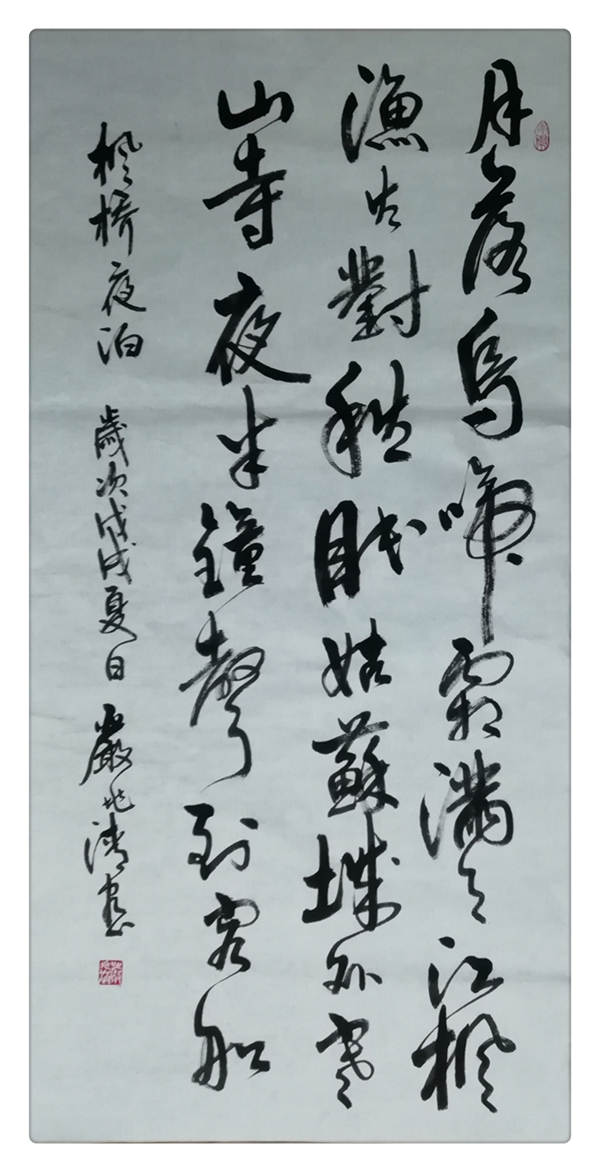 月落烏啼霜滿天江楓
漁火對愁眠姑蘇城外寒
山寺夜半鐘聲到客船
楓橋夜泊 歲次戊戌夏日 嚴兆清書